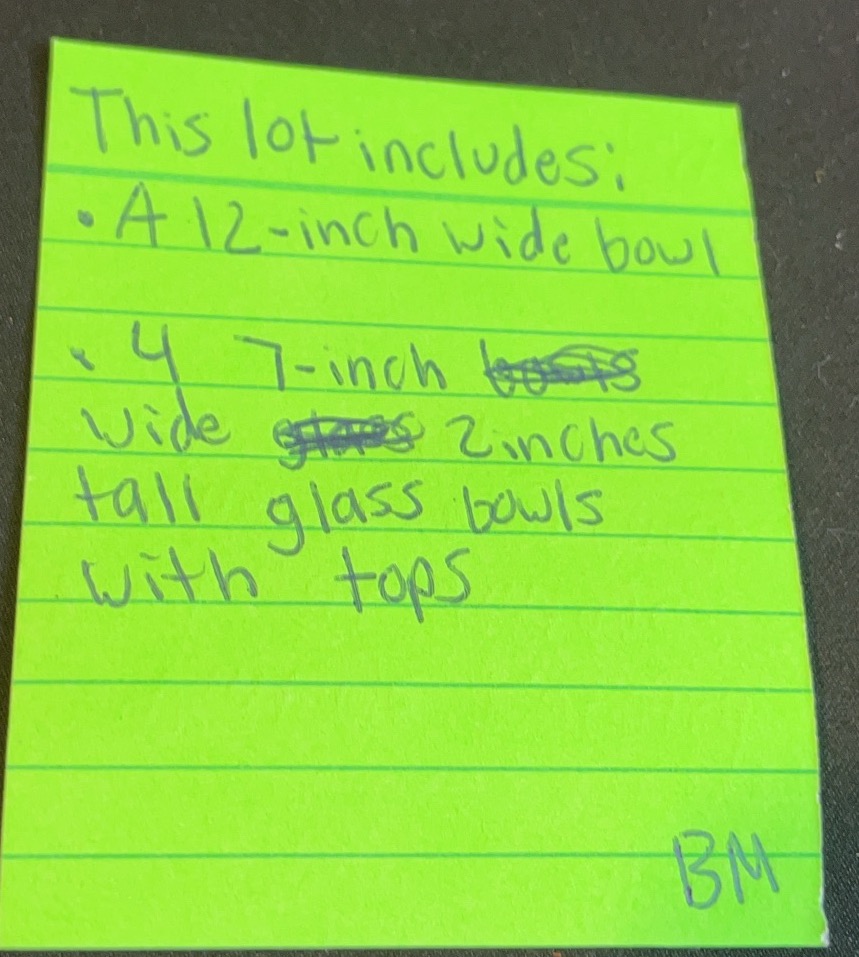 This lot includes:
• A 12-inch wide bowl
• 4 7-inch
wide 2 inches
tall glass bowls
with tops
BM